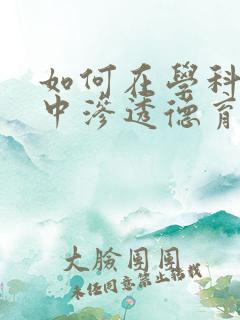 如何在學科
中滲透德育
大臉圈圈
未經同意禁止轉載